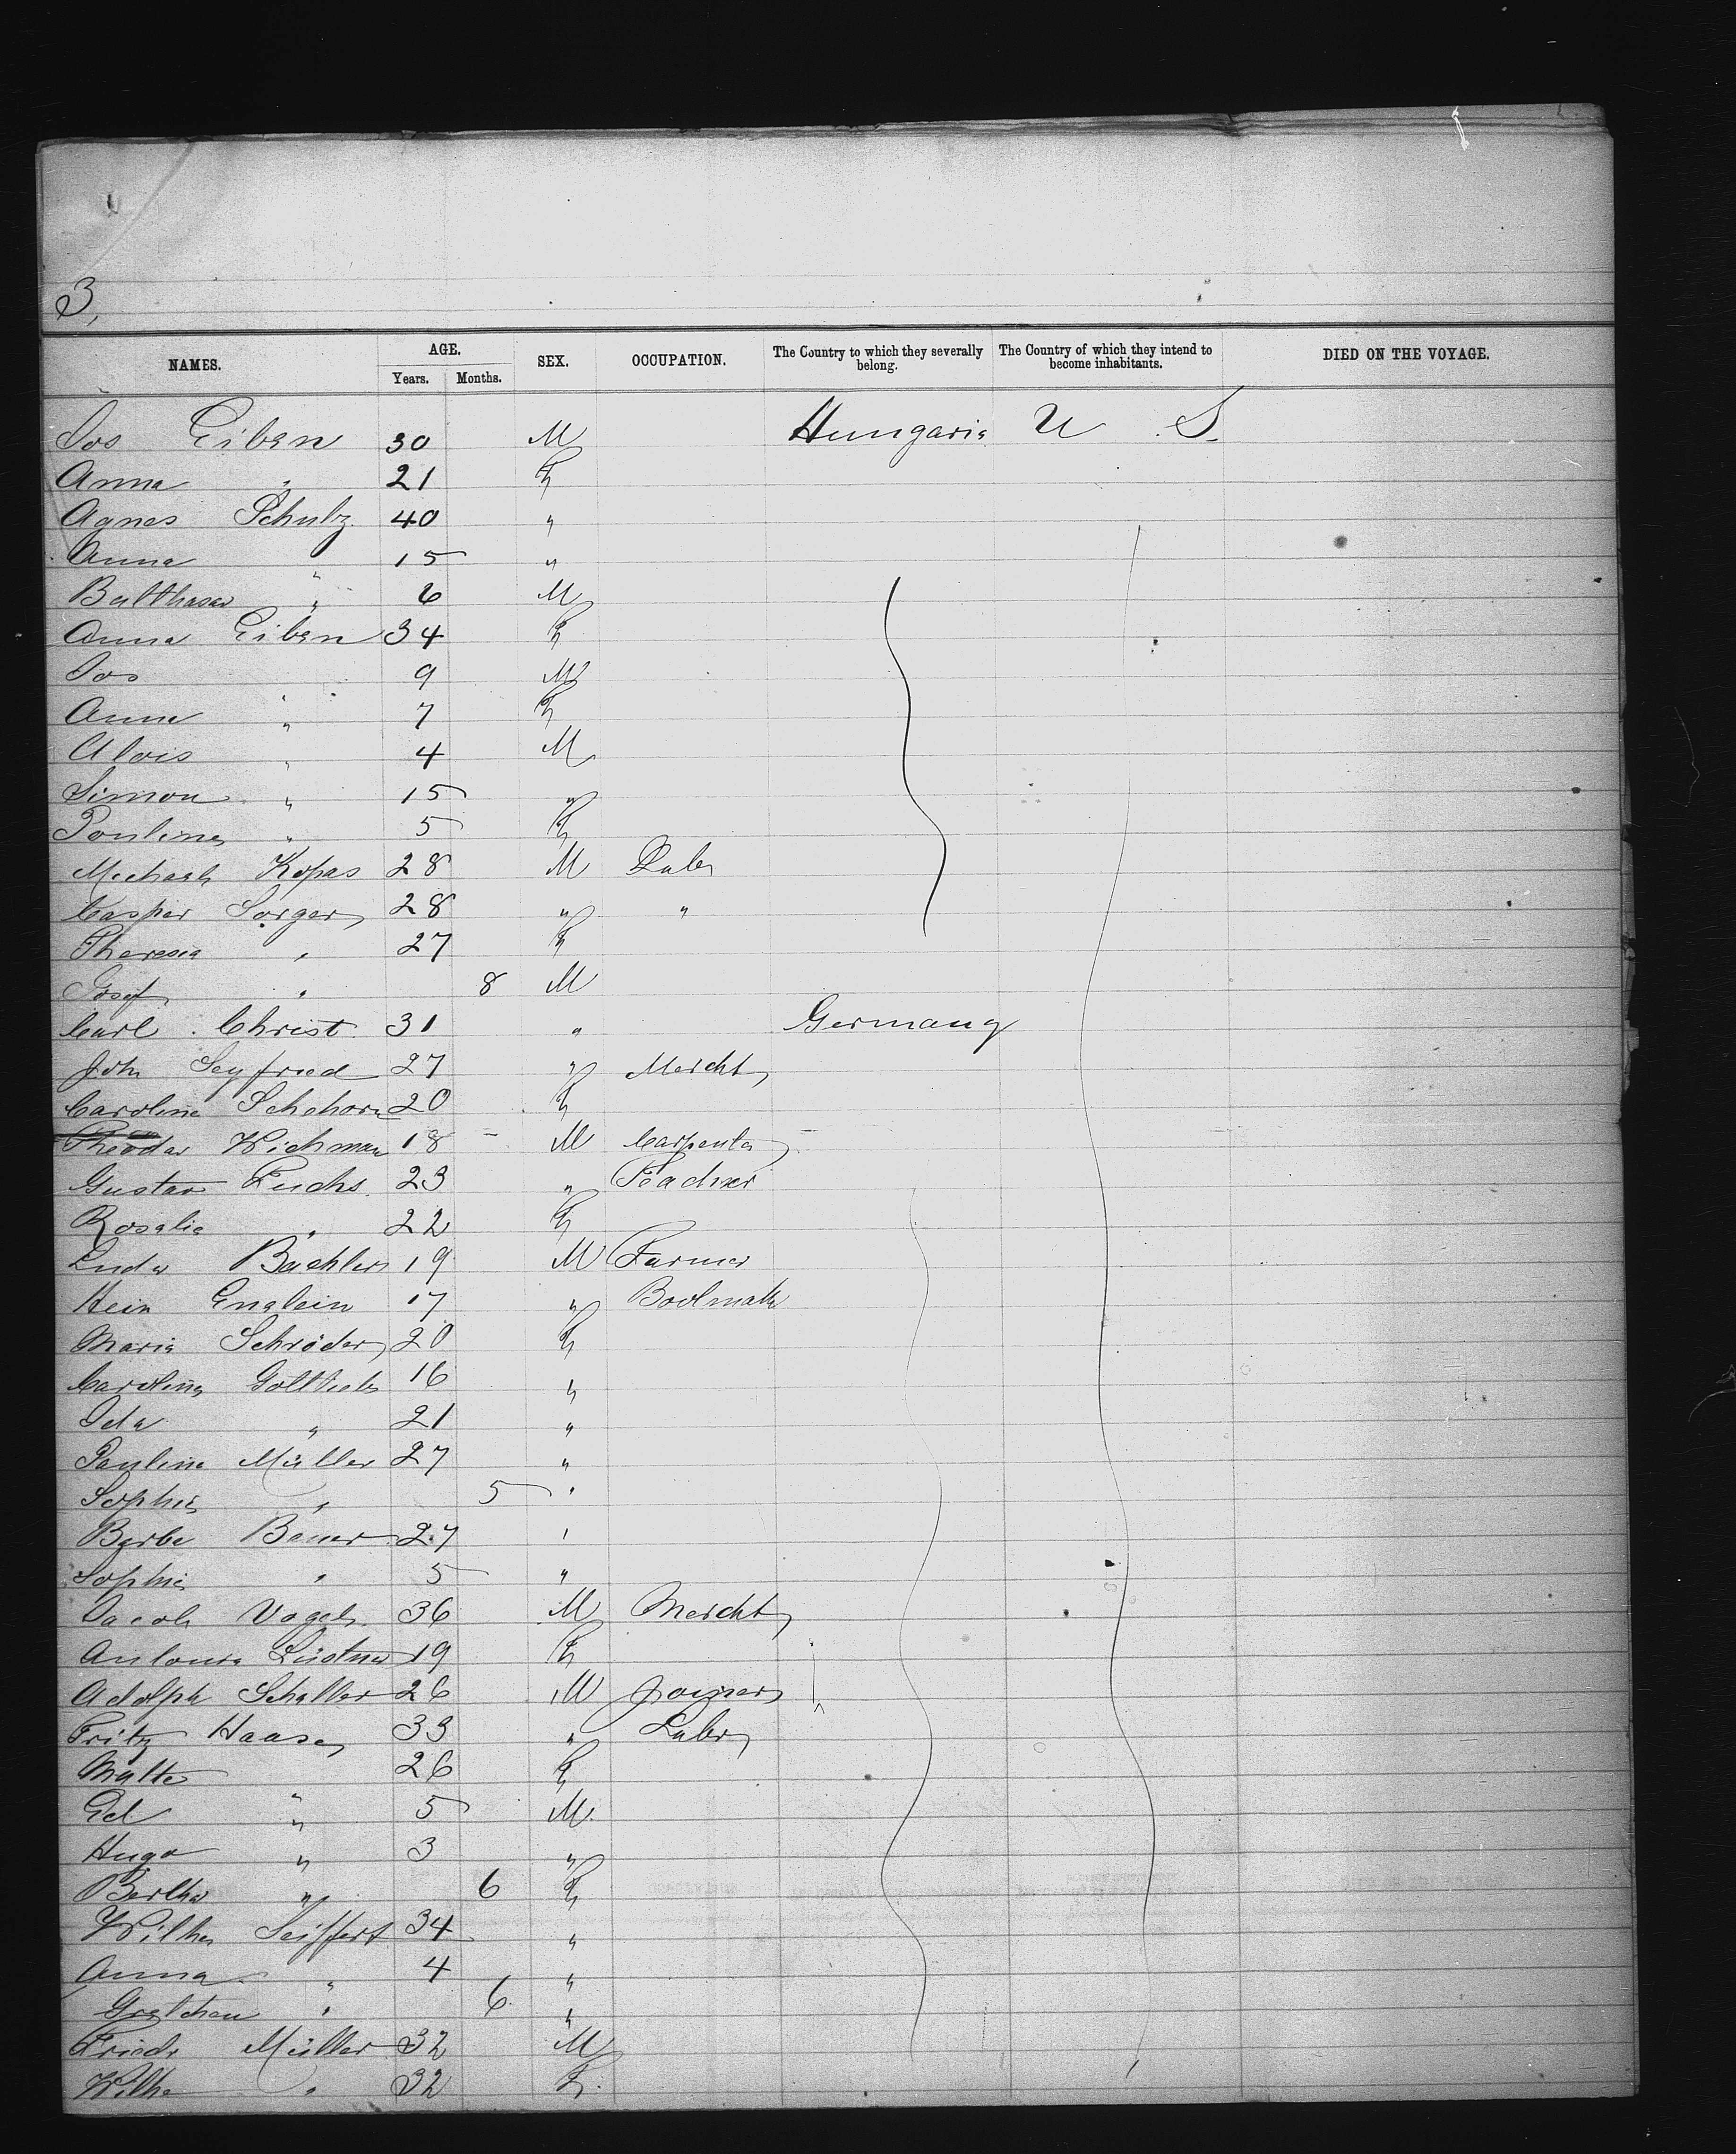 3,
NAMES. AGE. Years. Months. SEX. OCCUPATION. The Country to which they severally belong. The Country of which they intend to become inhabitants. DIED ON THE VOYAGE.
Jos Eiben 30 M Hungaria U. S.
Anna " 21 F
Agnes Schulz 40 "
Anna " 15 "
Balthasar " 6 M
Anna Eiben 34 F
Jos " 9 M
Anna " 7 F
Alois " 4 M
Simon " 15 "
Pauline " 5 F
Michael Kopas 28 M Labr
Casper Sorger 28 " "
Theresia " 27 F
Josef " 8 M
Carl Christ 31 " Germany
John Seyfried 27 " Mercht
Caroline Schehorn 20 F
Theodor Wichman 18 - M Carpenter
Gustav Fuchs 23 " Teacher
Rosalie " 22 F
Ludw Bachler 19 M Farmer
Hein 17 "
Maria Schröder 20 F
Caroline Gottlieb 16 "
Ida " 21 "
Pauline Müller 27 "
Sophie " 5 "
Barba Bauer 27 "
Sophie " 5 "
Jacob Vogel 36 M Mercht
Antonia Lüstner 19 F
Adolph Schaller 26 M Joyner
Fritz Haase 33 " Labr
Malte " 26 F
Ed " 5 M
Hugo " 3 "
Bertha " 6 F
Wilhe Seiffert 34 "
Anna " 4 "
Gretchen " 6 "
Friedr Müller 32 M
Wilhe " 32 F.